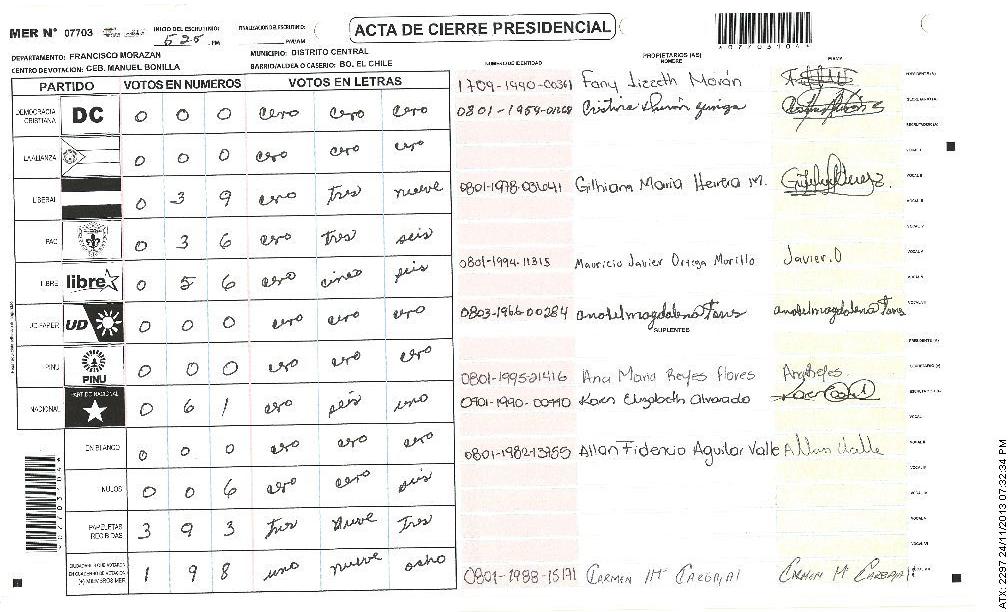 MER N° 07703
INICIO DEL ESCRUTINIO:
525 PM
FINALIZACION DEL ESCRUTINIO:
PM/AM
ACTA DE CIERRE PRESIDENCIAL
DEPARTAMENTO: FRANCISCO MORAZAN
MUNICIPIO: DISTRITO CENTRAL
CENTRO DE VOTACION: CEB. MANUEL BONILLA
BARRIO/ALDEA O CASERIO: BO. EL CHILE
NUMERO DE IDENTIDAD
PROPIETARIOS (AS)
NOMBRE
FIRMA
PARTIDO VOTOS EN NUMEROS VOTOS EN LETRAS
DEMOCRACIA CRISTIANA DC 0 0 0 cero cero cero
LA ALIANZA 0 0 0 cero cero cero
LIBERAL 0 3 9 cero tres nueve
PAC 0 3 6 cero tres seis
LIBRE libre 0 5 6 cero cinco seis
UD FAPER UD 0 0 0 cero cero cero
PINU PINU 0 0 0 cero cero cero
NACIONAL PARTIDO NACIONAL 0 6 1 cero seis uno
EN BLANCO 0 0 0 cero cero cero
NULOS 0 0 6 cero cero seis
PAPELETAS RECIBIDAS 3 9 3 tres nueve tres
CIUDADANOS QUE VOTARON EN CUADERNO DE VOTACION (+) MIEMBROS MER 1 9 8 uno nueve ocho
1709-1990-00361 Fany Lizeth Morán
PRESIDENTE(A)
Cristina
SECRETARIO(A)
ESCRUTADOR(A)
VOCAL I
0801-1978-036041 Gilhiam Maria Herrera M.
VOCAL II
0801-1994-11315 Mauricio Javier Ortega Morillo Javier.O
0803-1966-00284 anabelmagdalena
SUPLENTES
PRESIDENTE (A)
0801-1995-21416 Ana Maria Reyes flores AnaReyes
SECRETARIO (A)
0901-1990-00990 Karen Elizabeth Alvarado
0801-1982-13955 Allan Fidencio Aguilar Valle Allan Valle
0801-1988-15171 CARMEN M CARBAJAl CARMEN M CARBAJAl
ATX: 2297 24/11/2013 07:32:34 PM